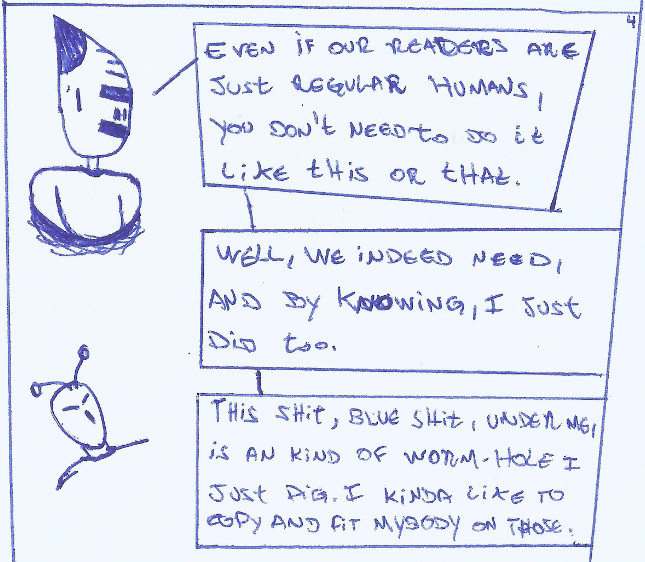 4
EVEN IF OUR READERS ARE
JUST REGULAR HUMANS,
YOU DON'T NEED TO DO IT
LIKE THIS OR THAT.
WELL, WE INDEED NEED,
AND BY KNOWING, I JUST
DID TOO.
THIS SHIT, BLUE SHIT, UNDER ME,
IS AN KIND OF WORM-HOLE I
JUST DIG. I KINDA LIKE TO
COPY AND FIT MYBODY ON THOSE.